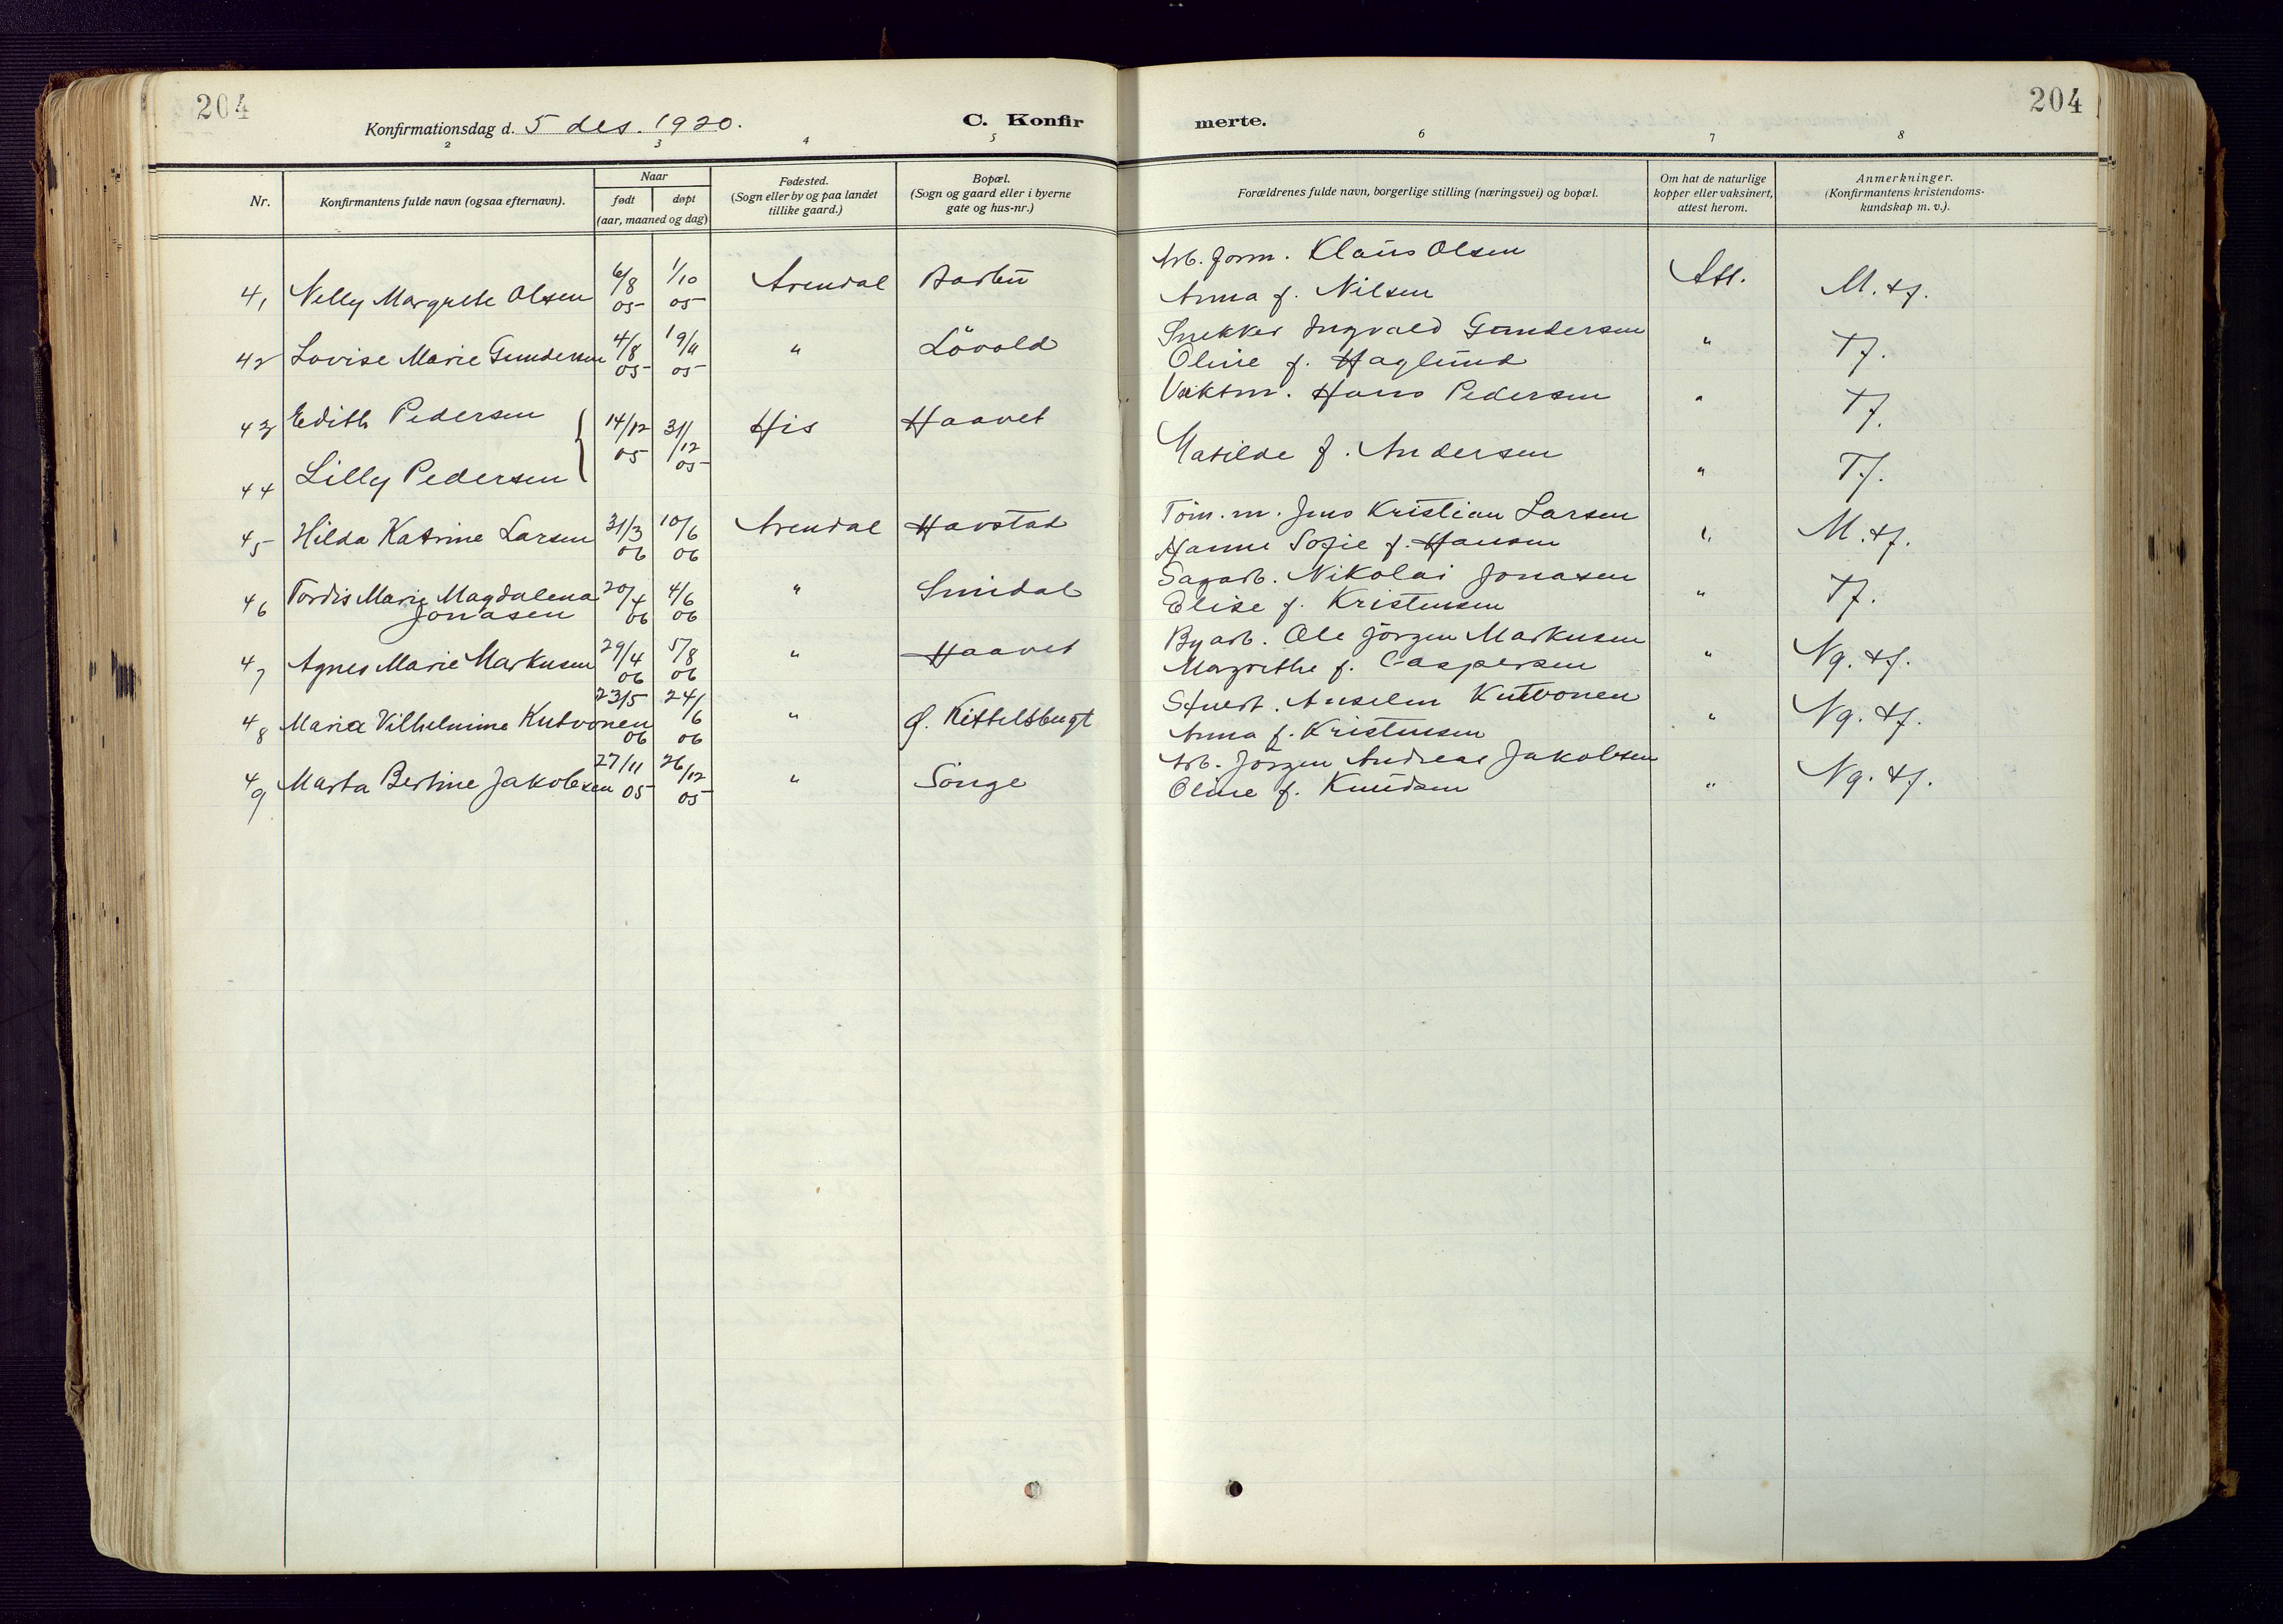 204
204
Konfirmationsdag d. 5 des. 1920.
C. Konfir
merte.
2 3 4 5 6 7 8
Nr.
Konfirmantens fulde navn (ogsaa efternavn).
Naar
født døpt
(aar, maaned og dag)
Fødested.
(Sogn eller by og paa landet
tillike gaard.)
Bopæl.
(Sogn og gaard eller i byerne
gate og hus-nr.)
Forældrenes fulde navn, borgerlige stilling (næringsvei) og bopæl.
Om hat de naturlige
kopper eller vaksinert,
attest herom.
Anmerkninger.
(Konfirmantens kristendoms-
kundskap m. v.).
41 Nelly Margrete Olsen 6/8 05 1/10 05 Arendal Barbu Arb. form. Klaus Olsen
Anna f. Nilsen Att. M. tf.
42 Lovise Marie Gundersen 4/8 05 19/11 05 " Lövold Snekker Ingvald Gundersen
Oline f. Haglund " Tf.
43 Edith Pedersen { 14/12 05 31/12 05 His Haavet Vaktm. Hans Pedersen " Tf.
44 Lilly Pedersen Matilde f. Andersen " Tf.
45 Hilda Katrine Larsen 31/3 06 10/6 06 Arendal Havstad Töm. m. Jens Kristian Larsen
Hanne Sofie f. Hansen " M. tf.
46 Tordis Marie Magdalena
Jonasen 20/4 06 4/6 06 " Smidal Sagarb. Nikolai Jonasen
Elise f. Kristensen " Tf.
47 Agnes Marie Markusen 29/4 06 5/8 06 " Haavet Byarb. Ole Jörgen Markusen
Margrethe f. Caspersen " Ng. tf.
48 Maria Vilhelmine Kutvonen 23/5 06 24/6 06 " G. Kittelsbugt Stuert. Anselm Kutvonen
Anna f. Kristensen " Ng. tf.
49 Marta Bertine Jakobsen 27/11 05 26/12 05 " Songe Arb. Jörgen Andreas Jakobsen
Oline f. Knudsen " Ng. tf.